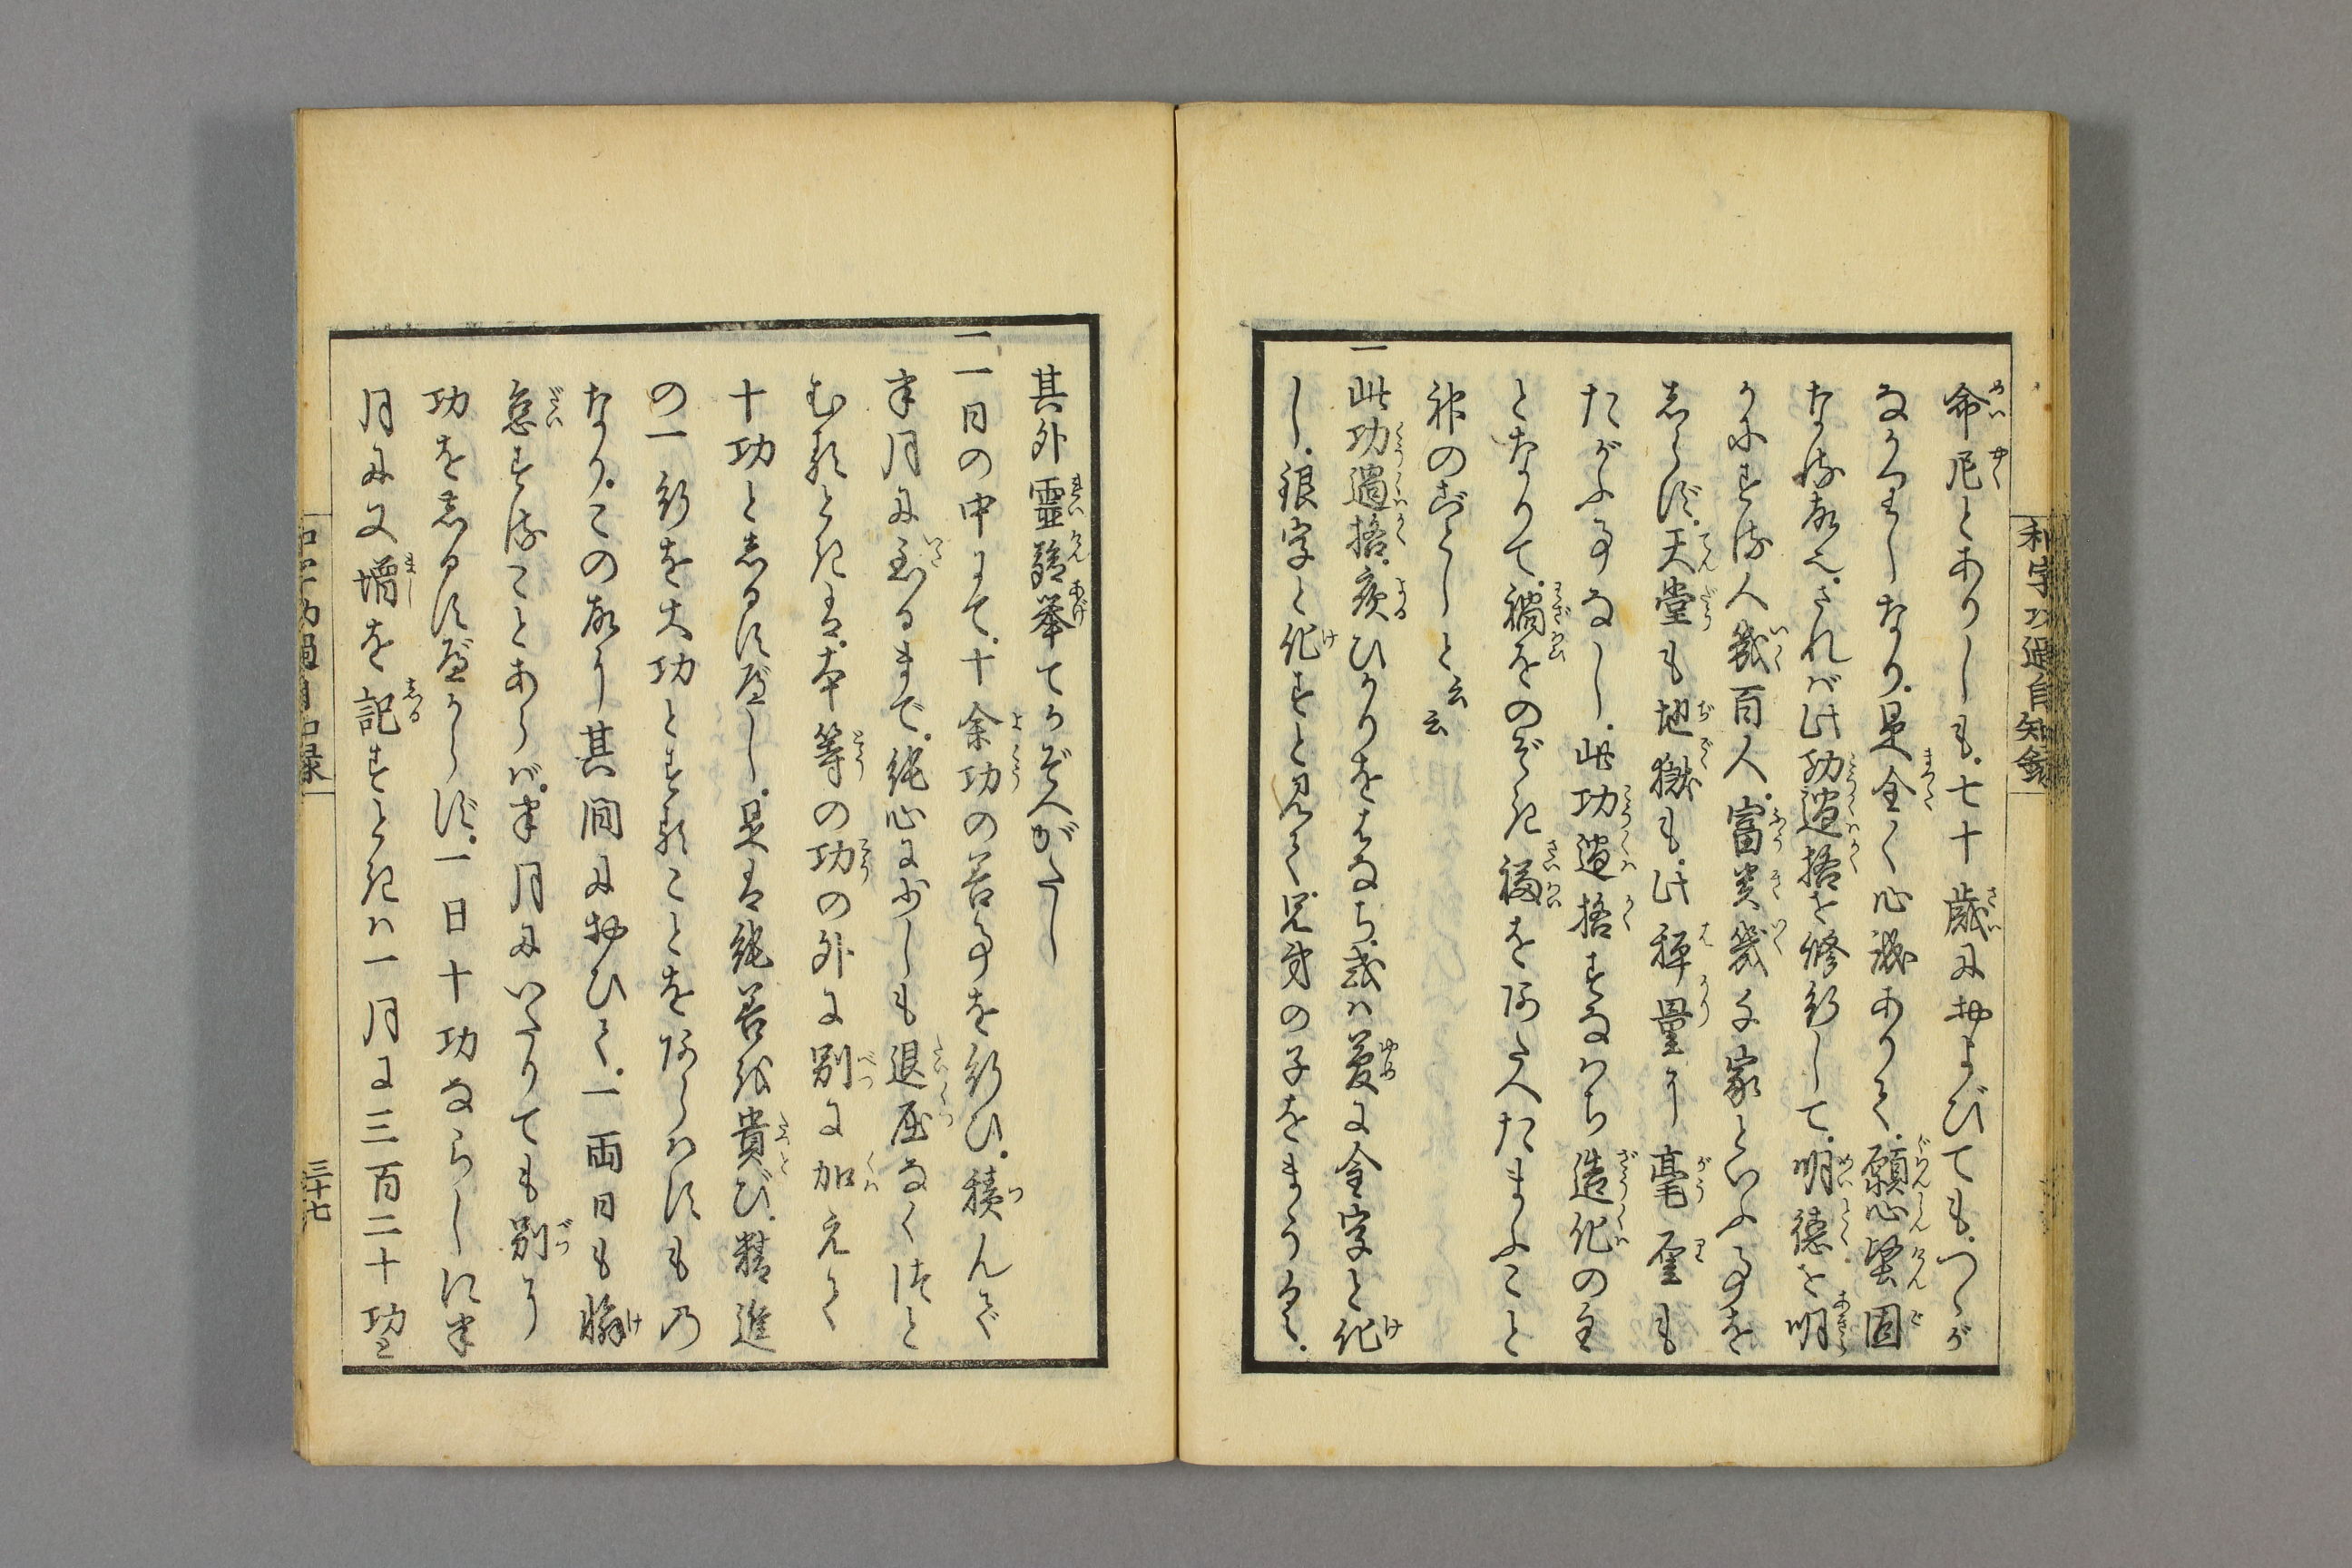 和字功過自知録
命厄とありしも。七十歳におよびても。つゝが
なかりしなり。是全く心誠ありて。願心堅固
なる故也。されば此功過格を修行して。明徳を明
かにする人幾百人。富貴幾千家といふ事を
しらず。天堂も地獄も。此秤量に毫厘も
たがふ事なし。此功過格すなはち造化の主
となりて。禍をのぞき福をあたへたまふこと
神のごとしと云云
一此功過格。夜ひかりをはなち。或は夢に金字と化
し。銀字と化すと見て。児男の子をまうくる。
其外霊験挙てかぞへがたし
一一日の中にて。十余功の善事を行ひ。積んで
半月に至るまで。純心に少しも退屈なくつと
むるときは。本等の功の外に別に加えて
十功としるすべし。是は純善を貴び。精進
の一行を大功とすることをあらはすもの
なり。この故に其間において。一両日も懈
怠することあらば。半月にいたりても別に
功をしるすべからず。一日十功ならしに半
月に又増を記すときは一月に三百二十功と
和字功過自知録
三十七